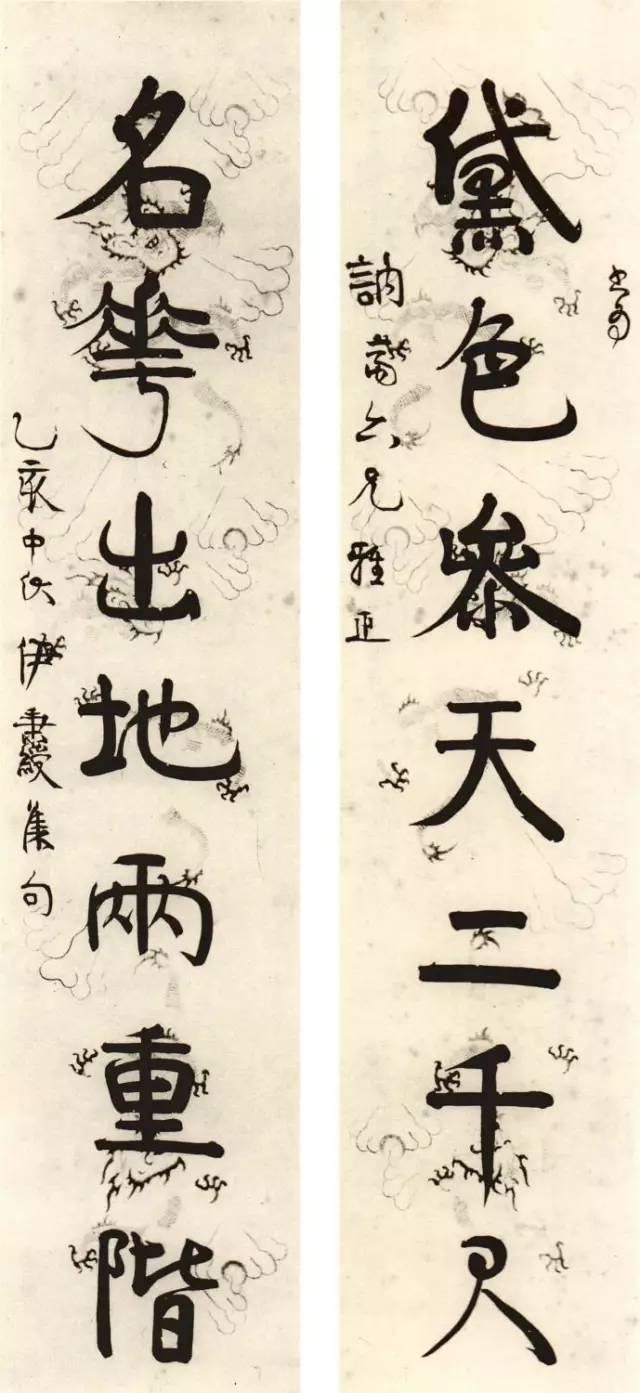 書為
黛色參天二千尺
訥六兄雅正
名華出地兩重階
乙亥中秋伊秉綬集句